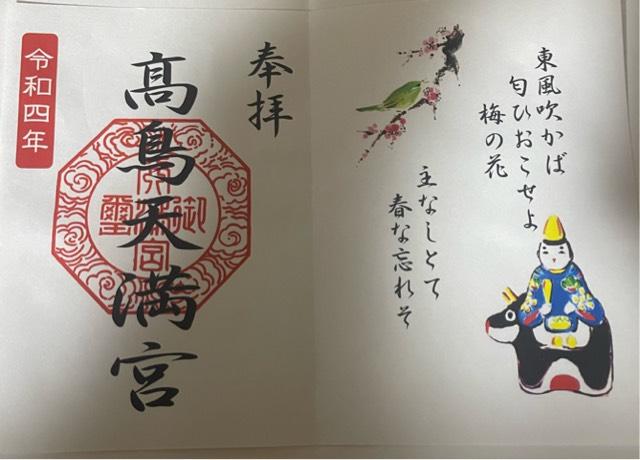 東風吹かば
匂ひおこせよ
梅の花
主なしとて
春な忘れそ
奉拝
髙鳥天満宮
令和四年